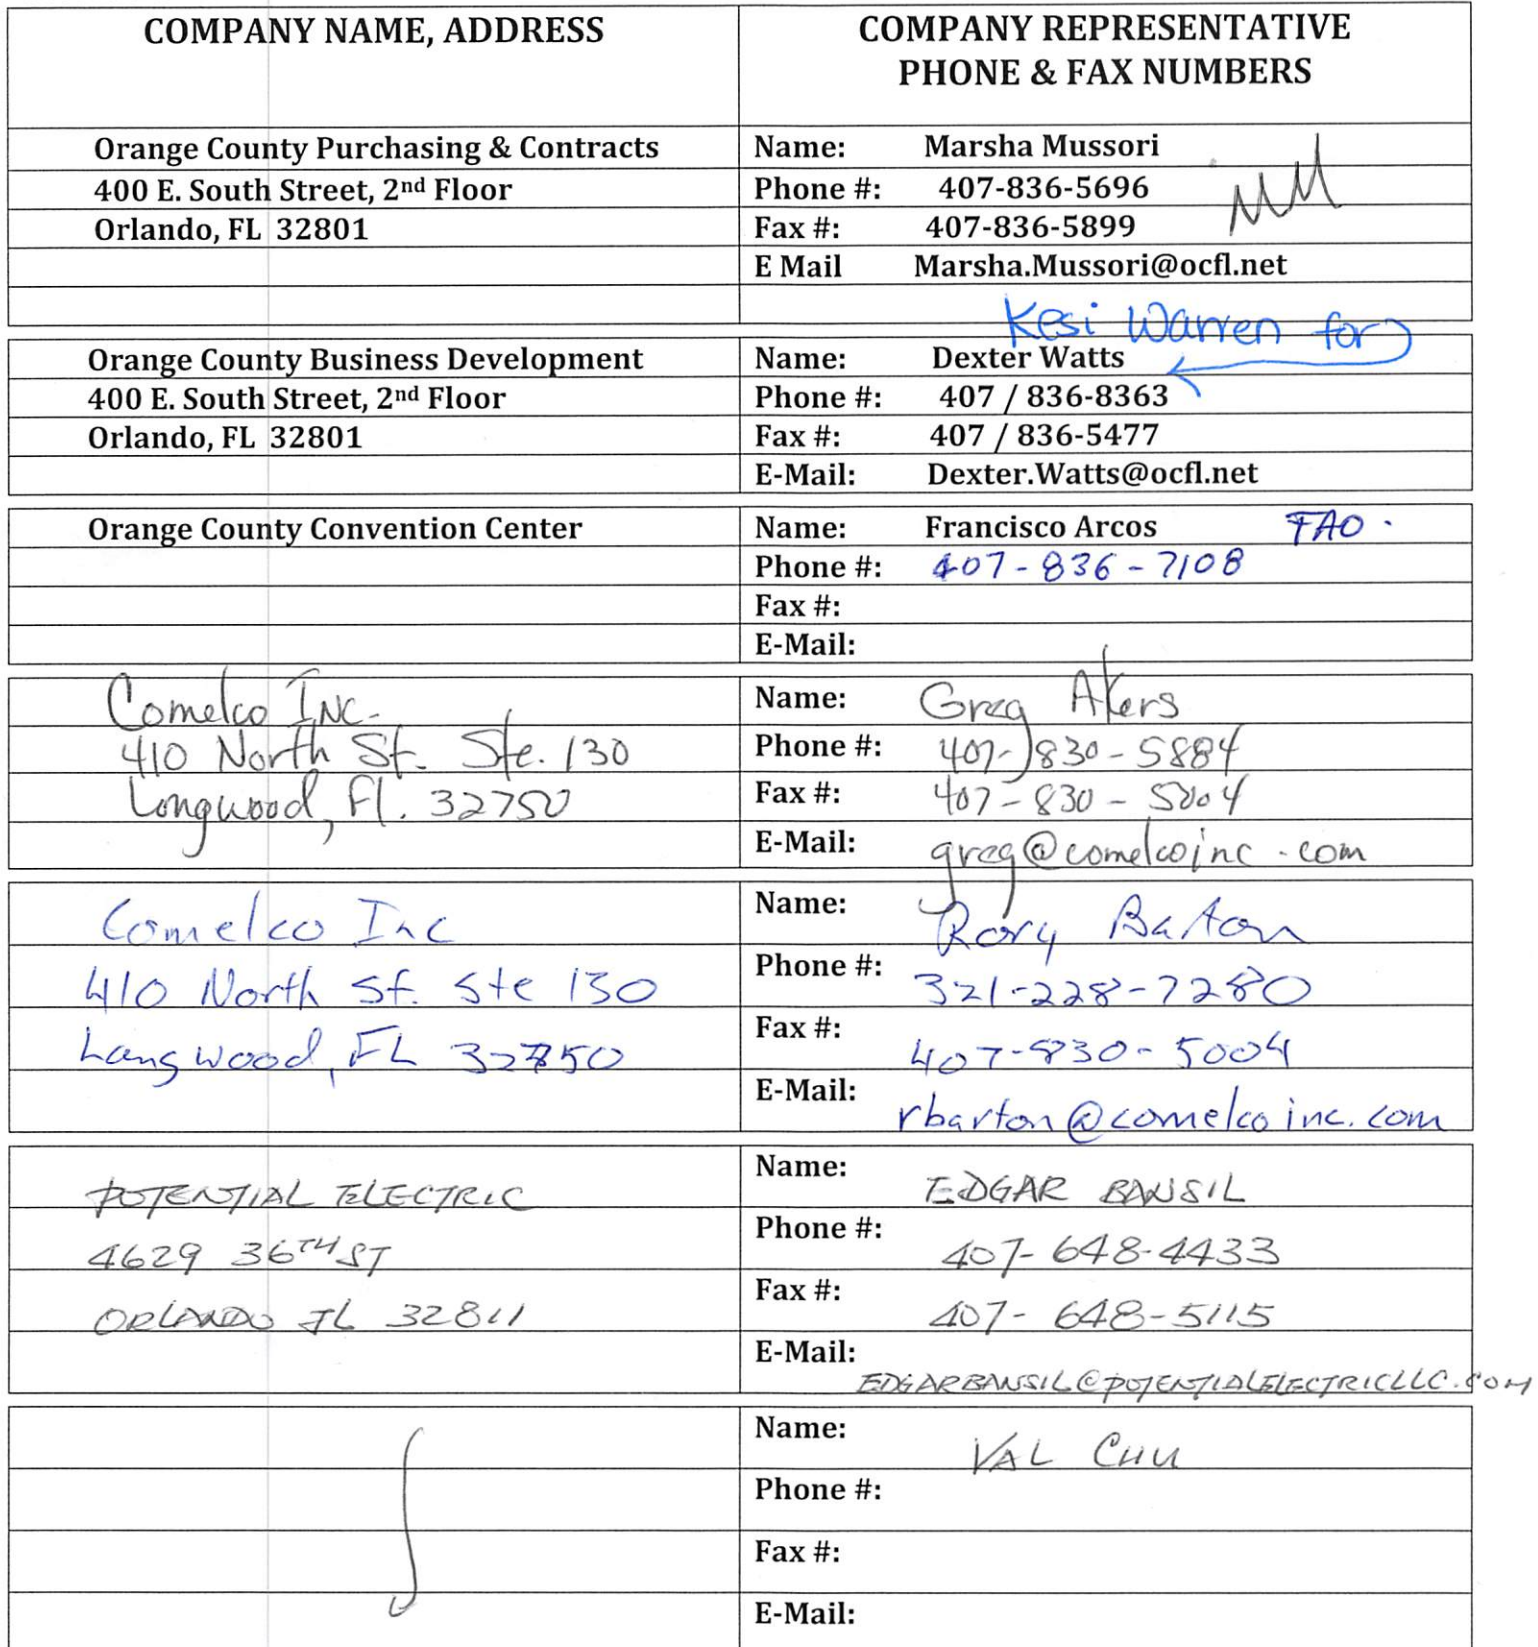 COMPANY NAME, ADDRESS
COMPANY REPRESENTATIVE
PHONE & FAX NUMBERS
Orange County Purchasing & Contracts
Name: Marsha Mussori
MM
400 E. South Street, 2nd Floor
Phone #: 407-836-5696
Orlando, FL 32801
Fax #: 407-836-5899
E Mail Marsha.Mussori@ocfl.net
Kesi Warren for
Orange County Business Development
Name: Dexter Watts
400 E. South Street, 2nd Floor
Phone #: 407 / 836-8363
Orlando, FL 32801
Fax #: 407 / 836-5477
E-Mail: Dexter.Watts@ocfl.net
Orange County Convention Center
Name: Francisco Arcos FAO.
Phone #: 407-836-7108
Fax #:
E-Mail:
Comelco INC.
Name: Greg Akers
410 North St. Ste. 130
Phone #: 407-830-5884
Longwood, Fl. 32750
Fax #: 407-830-5004
E-Mail: greg@comelcoinc.com
Comelco Inc
Name: Rory Barton
410 North St. Ste 130
Phone #: 321-228-7280
Longwood, FL 32750
Fax #: 407-830-5004
E-Mail: rbarton@comelcoinc.com
POTENTIAL ELECTRIC
Name: EDGAR BANSIL
4629 36TH ST
Phone #: 407-648-4433
ORLANDO FL 32811
Fax #: 407-648-5115
E-Mail: EDGARBANSIL@POTENTIALELECTRICLLC.COM
Name: VAL CHU
Phone #:
Fax #:
E-Mail: